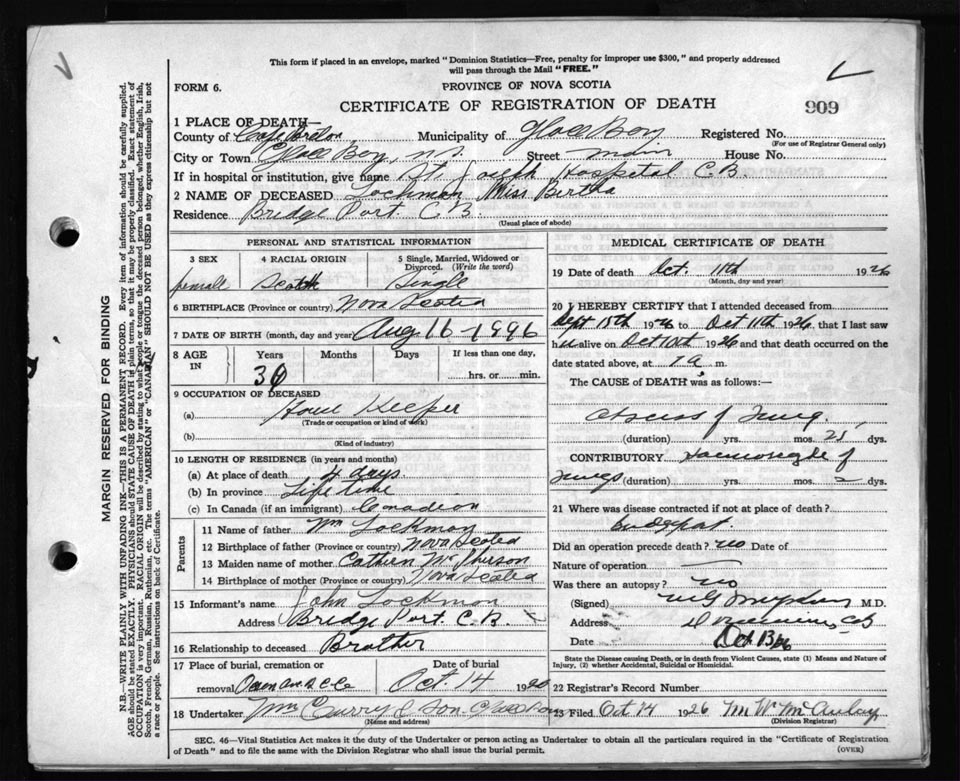 This form if placed in an envelope, marked "Dominion Statistics—Free, penalty for improper use $300," and properly addressed
will pass through the Mail "FREE."
FORM 6.
PROVINCE OF NOVA SCOTIA
CERTIFICATE OF REGISTRATION OF DEATH
909
1 PLACE OF DEATH—
County of Cape Breton Municipality of Glace Bay Registered No.
(For use of Registrar General only)
City or Town Glace Bay, N.S. Street Main House No.
If in hospital or institution, give name St. Joseph Hospital C.B.
2 NAME OF DECEASED Lockman Miss Bertha
Residence Bridge Port. C.B.
(Usual place of abode)
PERSONAL AND STATISTICAL INFORMATION
3 SEX 4 RACIAL ORIGIN 5 Single, Married, Widowed or Divorced. (Write the word)
female Scotch Single
6 BIRTHPLACE (Province or country) Nova Scotia
7 DATE OF BIRTH (month, day and year) Aug 16 - 1896
8 AGE IN Years Months Days If less than one day,
30 hrs. or min.
9 OCCUPATION OF DECEASED
(a) House Keeper
(Trade or occupation or kind of work)
(b)
(Kind of industry)
10 LENGTH OF RESIDENCE (in years and months)
(a) At place of death 4 days
(b) In province Life time
(c) In Canada (if an immigrant) Canadian
Parents
11 Name of father Wm Lockman
12 Birthplace of father (Province or country) Nova Scotia
13 Maiden name of mother Cathern McPherson
14 Birthplace of mother (Province or country) Nova Scotia
15 Informant's name John Lockman
Address Bridge Port C.B.
16 Relationship to deceased Brother
17 Place of burial, cremation or Date of burial
removal Oct. 14 1920
18 Undertaker Wm Curry & Son Glace Bay
(Name and address)
MEDICAL CERTIFICATE OF DEATH
19 Date of death Oct. 11th 1926
(Month, day and year)
20 I HEREBY CERTIFY that I attended deceased from
Sept 15th 1926 to Oct 11th 1926, that I last saw
h alive on Oct 10th 1926 and that death occurred on the
date stated above, at 7 a. m.
The CAUSE of DEATH was as follows:—
Abscess of Lung.
(duration) yrs. mos. 25 dys.
CONTRIBUTORY Haemorrhage of
Lungs (duration) yrs. mos. 2 dys.
21 Where was disease contracted if not at place of death?
Bridgeport.
Did an operation precede death? no Date of
Nature of operation
Was there an autopsy? no
(Signed) M.D.
Address
Date Oct 13/26
State the Disease causing Death, or in death from Violent Causes, state (1) Means and Nature of
Injury, (2) whether Accidental, Suicidal or Homicidal.
22 Registrar's Record Number
23 Filed Oct 14 1926 M W McAulay
(Division Registrar)
SEC. 46—Vital Statistics Act makes it the duty of the Undertaker or person acting as Undertaker to obtain all the particulars required in the "Certificate of Registration
of Death" and to file the same with the Division Registrar who shall issue the burial permit.
(OVER)
MARGIN RESERVED FOR BINDING
N.B.—WRITE PLAINLY WITH UNFADING INK—THIS IS A PERMANENT RECORD. Every item of information should be carefully supplied.
AGE should be stated EXACTLY. PHYSICIANS should STATE CAUSE OF DEATH in plain terms, so that it may be properly classified. Exact statement of
OCCUPATION is very important. RACIAL ORIGIN will be described by stating to what people or tongue the deceased person belonged, whether English, Irish,
Scotch, French, German, Russian, Ruthenian, etc. The terms "AMERICAN" or "CANADIAN" SHOULD NOT BE USED as they express citizenship but not
a race or people. See instructions on back of Certificate.